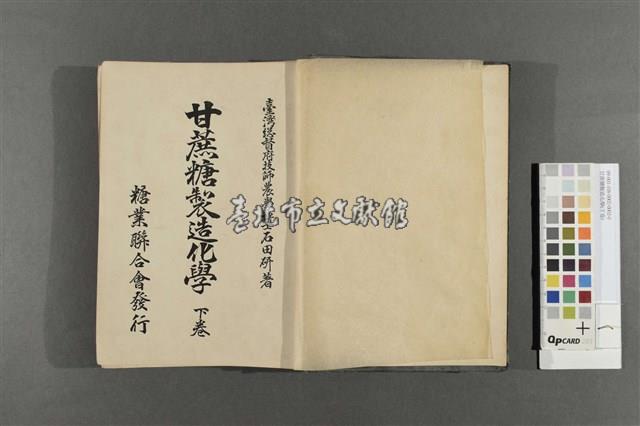 臺灣總督府技師農學士石田研著
甘蔗糖製造化學 下卷
糖業聯合會發行
臺北市立文獻館
QPCARD